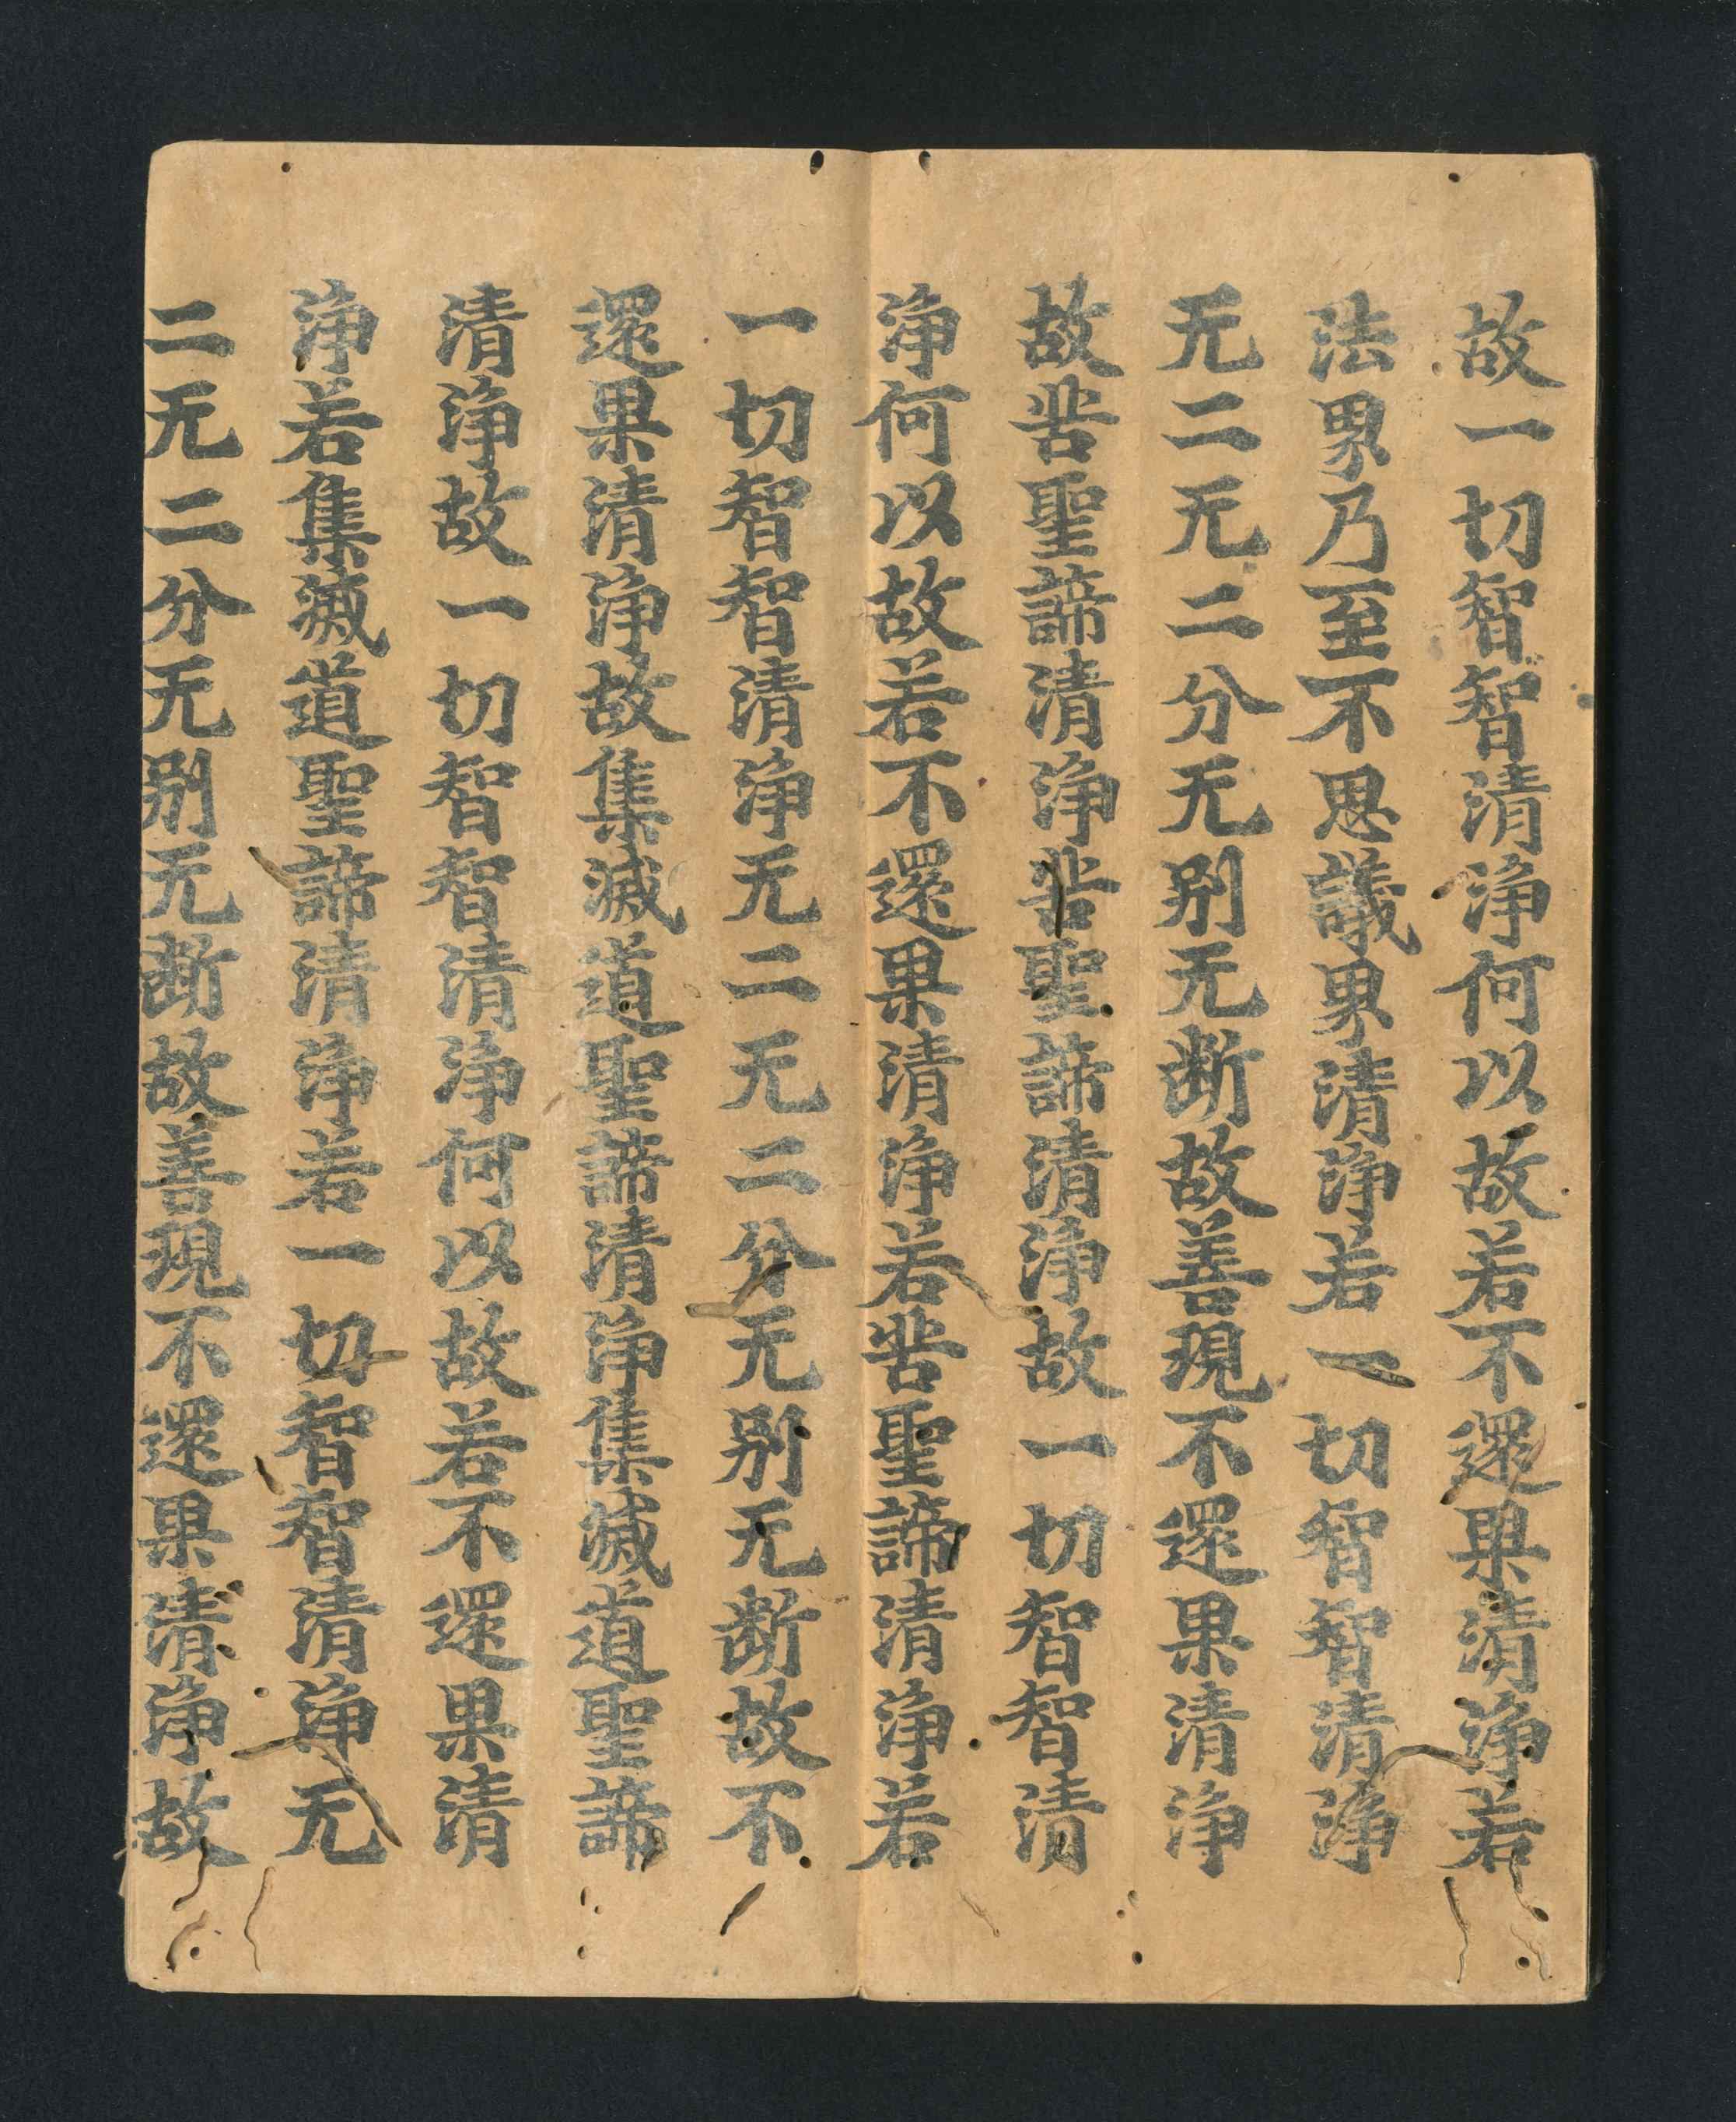 故一切智智清淨何以故若不還果清淨若
法界乃至不思議界清淨若一切智智清淨
无二无二分无别无斷故善現不還果清淨
故苦聖諦清淨苦聖諦清淨故一切智智清
淨何以故若不還果清淨若苦聖諦清淨若
一切智智清淨无二无二分无别无斷故不
還果清淨故集滅道聖諦清淨集滅道聖諦
清淨故一切智智清淨何以故若不還果清
淨若集滅道聖諦清淨若一切智智清淨无
二无二分无别无斷故善現不還果清淨故